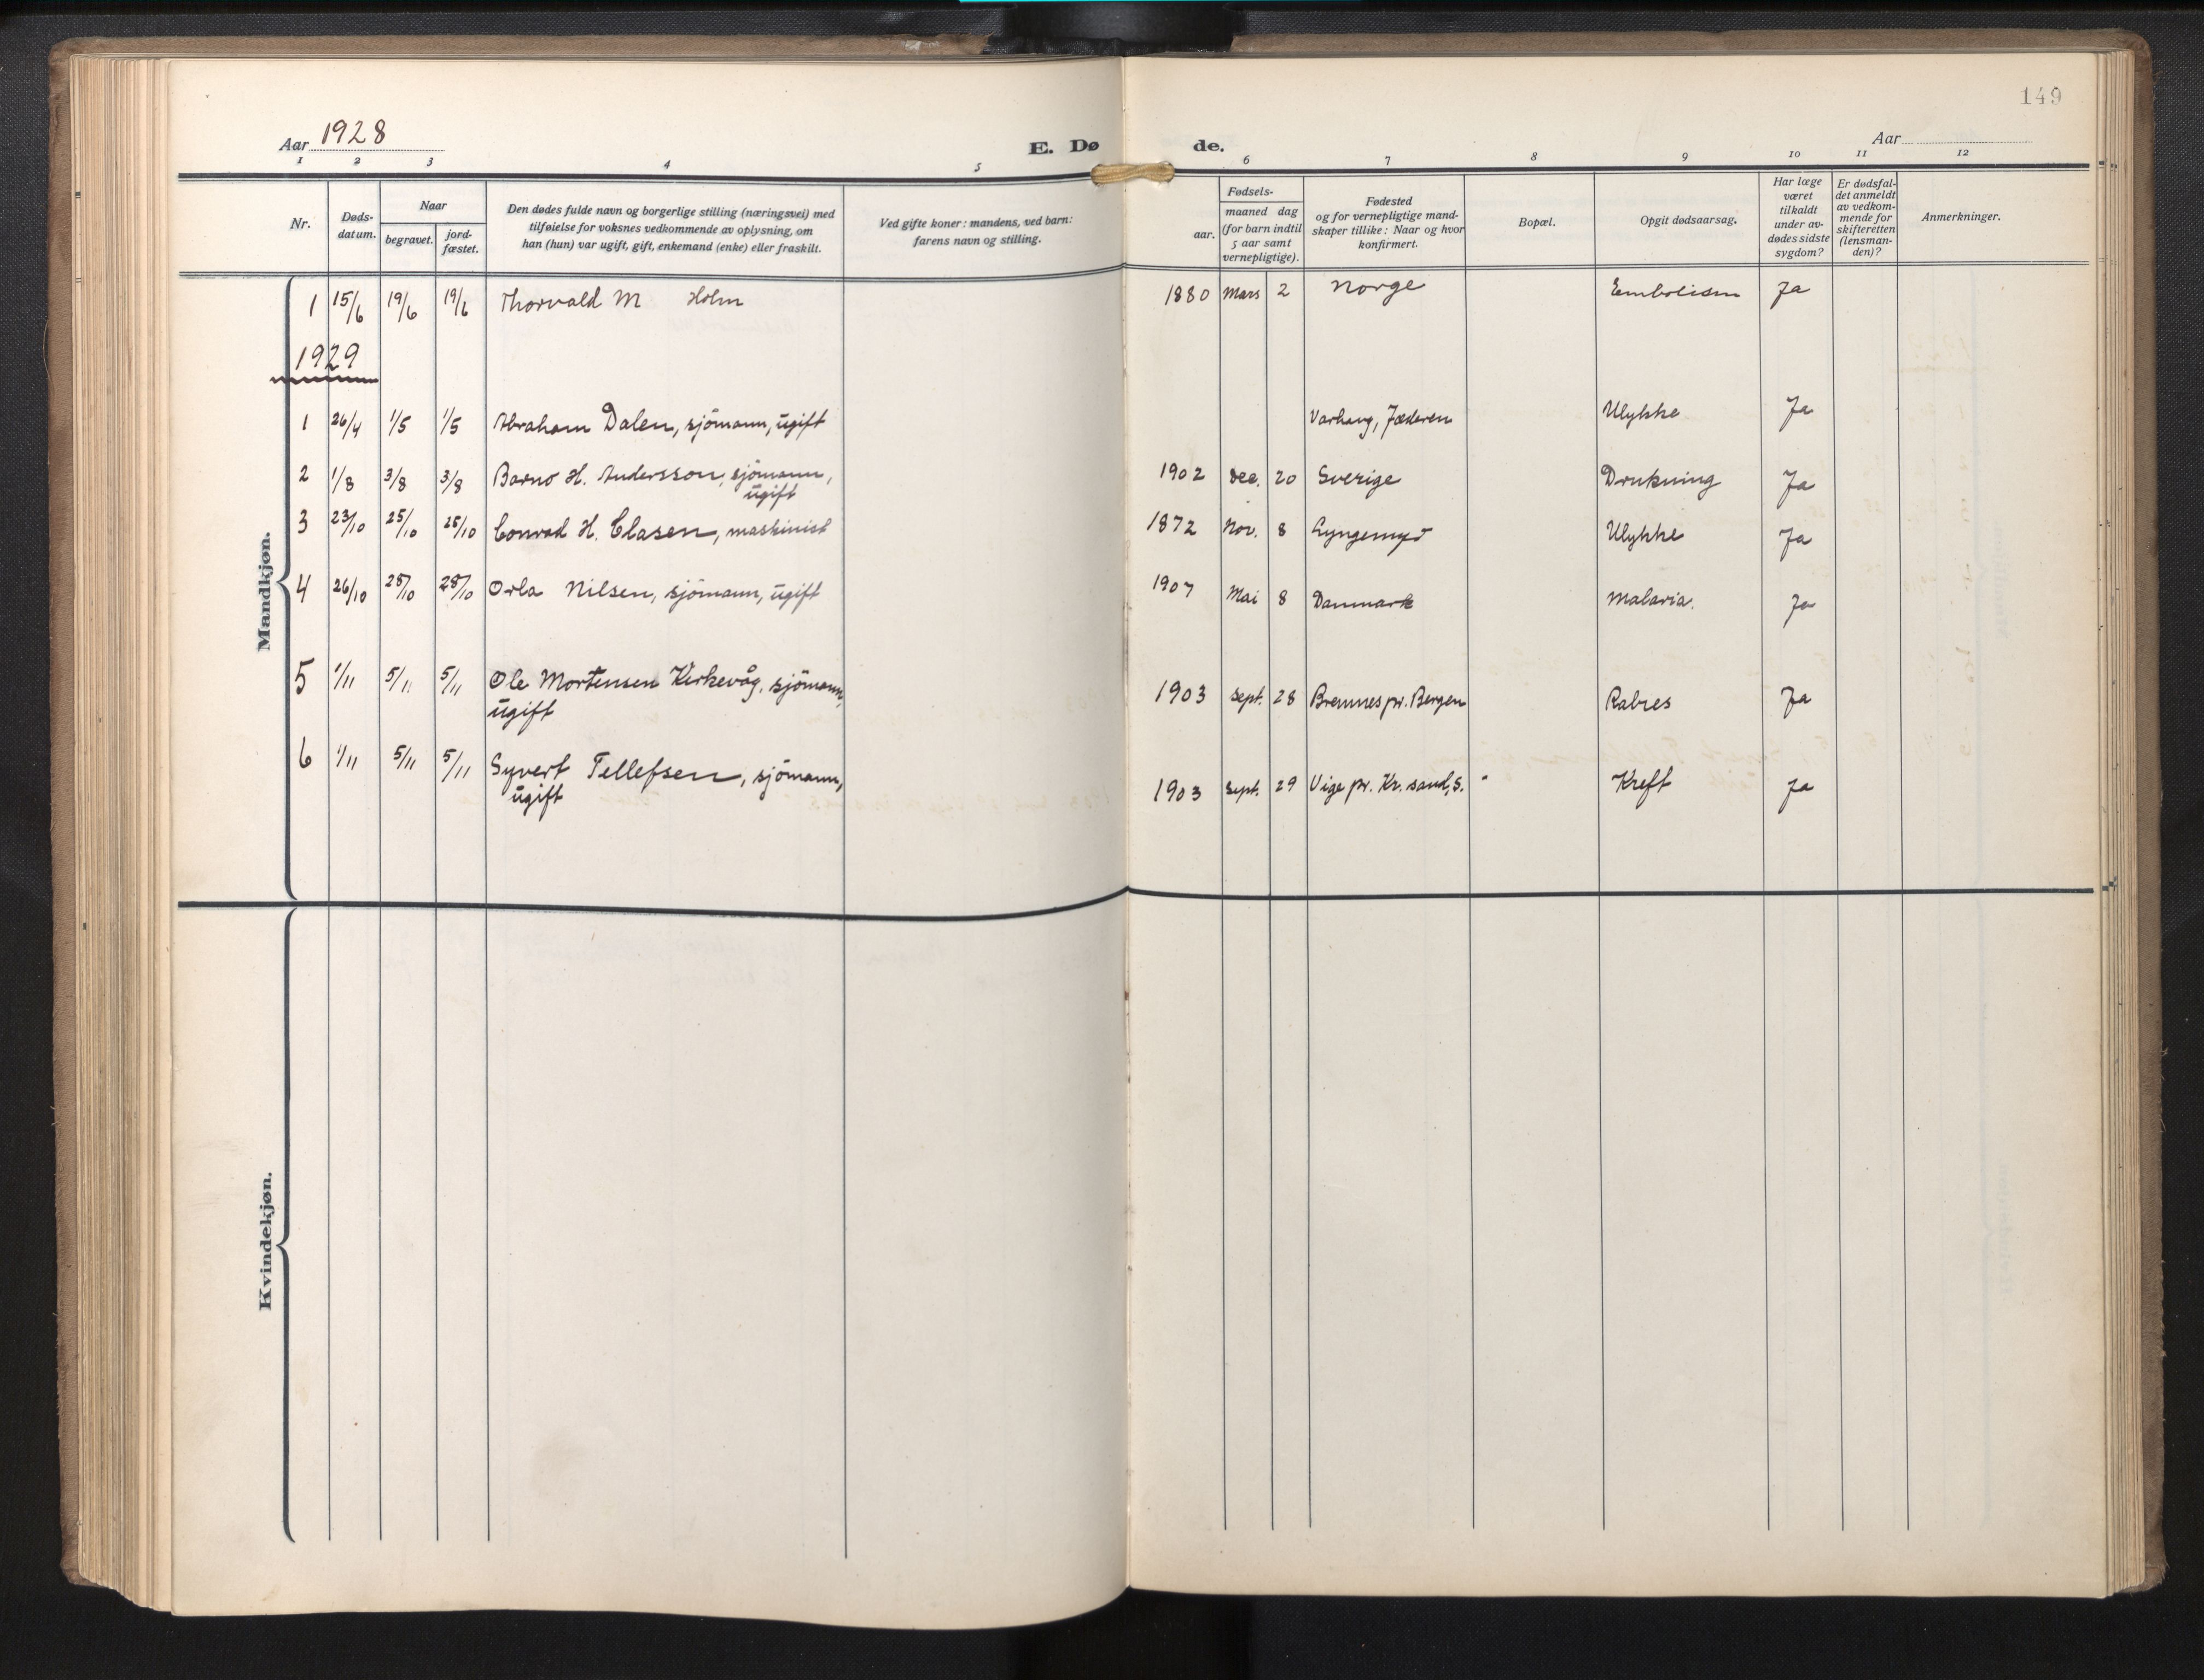 149
Aar 1928
E. Dø de.
Aar
1 2 3 4 5 6 7 8 9 10 11 12
Nr.
Døds-
datum.
Naar
begravet.
jord-
fæstet.
Den dødes fulde navn og borgerlige stilling (næringsvei) med
tilføielse for voksnes vedkommende av oplysning, om
han (hun) var ugift, gift, enkemand (enke) eller fraskilt.
Ved gifte koner: mandens, ved barn:
farens navn og stilling.
Fødsels-
aar.
maaned dag
(for barn indtil
5 aar samt
vernepligtige).
Fødested
og for vernepligtige mand-
skaper tillike: Naar og hvor
konfirmert.
Bopæl.
Opgit dødsaarsag.
Har læge
været
tilkaldt
under av-
dødes sidste
sygdom?
Er dødsfal-
det anmeldt
av vedkom-
mende for
skifteretten
(lensman-
den)?
Anmerkninger.
Mandkjøn.
1 15/6 19/6 19/6 Thorvald M Holm 1880 Mars 2 Norge Embolism Ja
1929
1 26/4 1/5 1/5 Abraham Dalen, sjömann, ugift Varhaug, Jæderen Ulykke Ja
2 1/8 3/8 3/8 Barno H. Andersson, sjömann, 1902 Dec. 20 Sverige Drukning Ja
ugift
3 23/10 25/10 25/10 Conrad H. Clasen, maskinist 1872 Nov. 8 Ulykke Ja
4 26/10 28/10 28/10 Orla Nilsen, sjömann, ugift 1907 Mai 8 Danmark Malaria. Ja
5 1/11 5/11 5/11 Ole Mortensen Kirkevåg, sjömann, 1903 Sept. 28 Bremnes pr. Bergen Rabies Ja
ugift
6 1/11 5/11 5/11 Syvert Tellefsen, sjömann, 1903 Sept. 29 Vige pr. Kr. sand, S. Kreft Ja
ugift
Kvindekjøn.